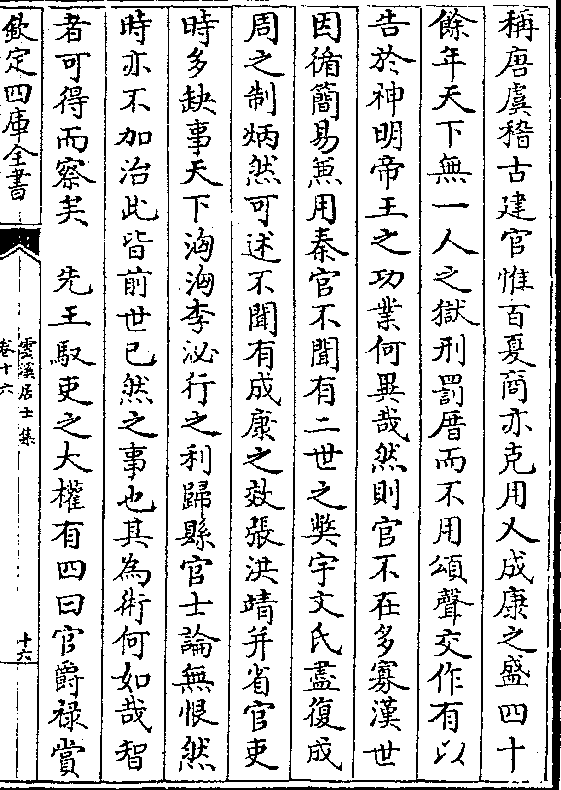 稱唐虞稽古建官惟百夏商亦克用乂成康之盛四十
餘年天下無一人之獄刑罰厝而不用頌聲交作有以
告於神明帝王之功業何異哉然則官不在多寡漢世
因循簡易兼用秦官不聞有二世之獘宇文氏盡復成
周之制炳然可述不聞有成康之效張洪靖并省官吏
時多缺事天下洶洶李泌行之利歸縣官士論無恨然
時亦不加治此皆前世已然之事也其為術何如哉智
者可得而察矣　先王馭吏之大權有四曰官爵祿賞
欽定四庫全書
雲溪居士集
卷十六
十六